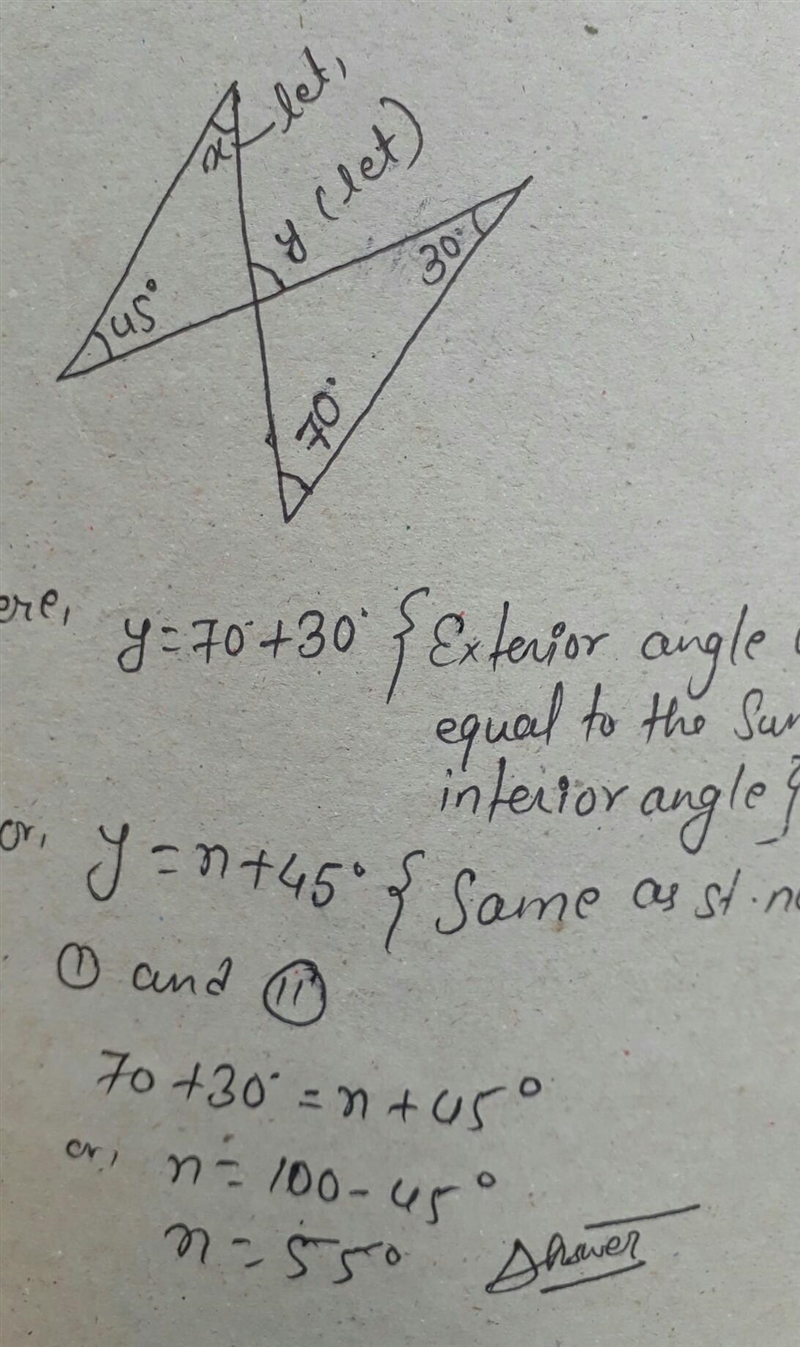 x let,
y (let)
45°
30°
70°
ere, y=70°+30° { Exterior angle
equal to the Sum
interior angle }
or, y = x+45° { Same as st. no
① and ⑪
70 +30° = x + 45°
or, x = 100 - 45°
x = 55° Answer